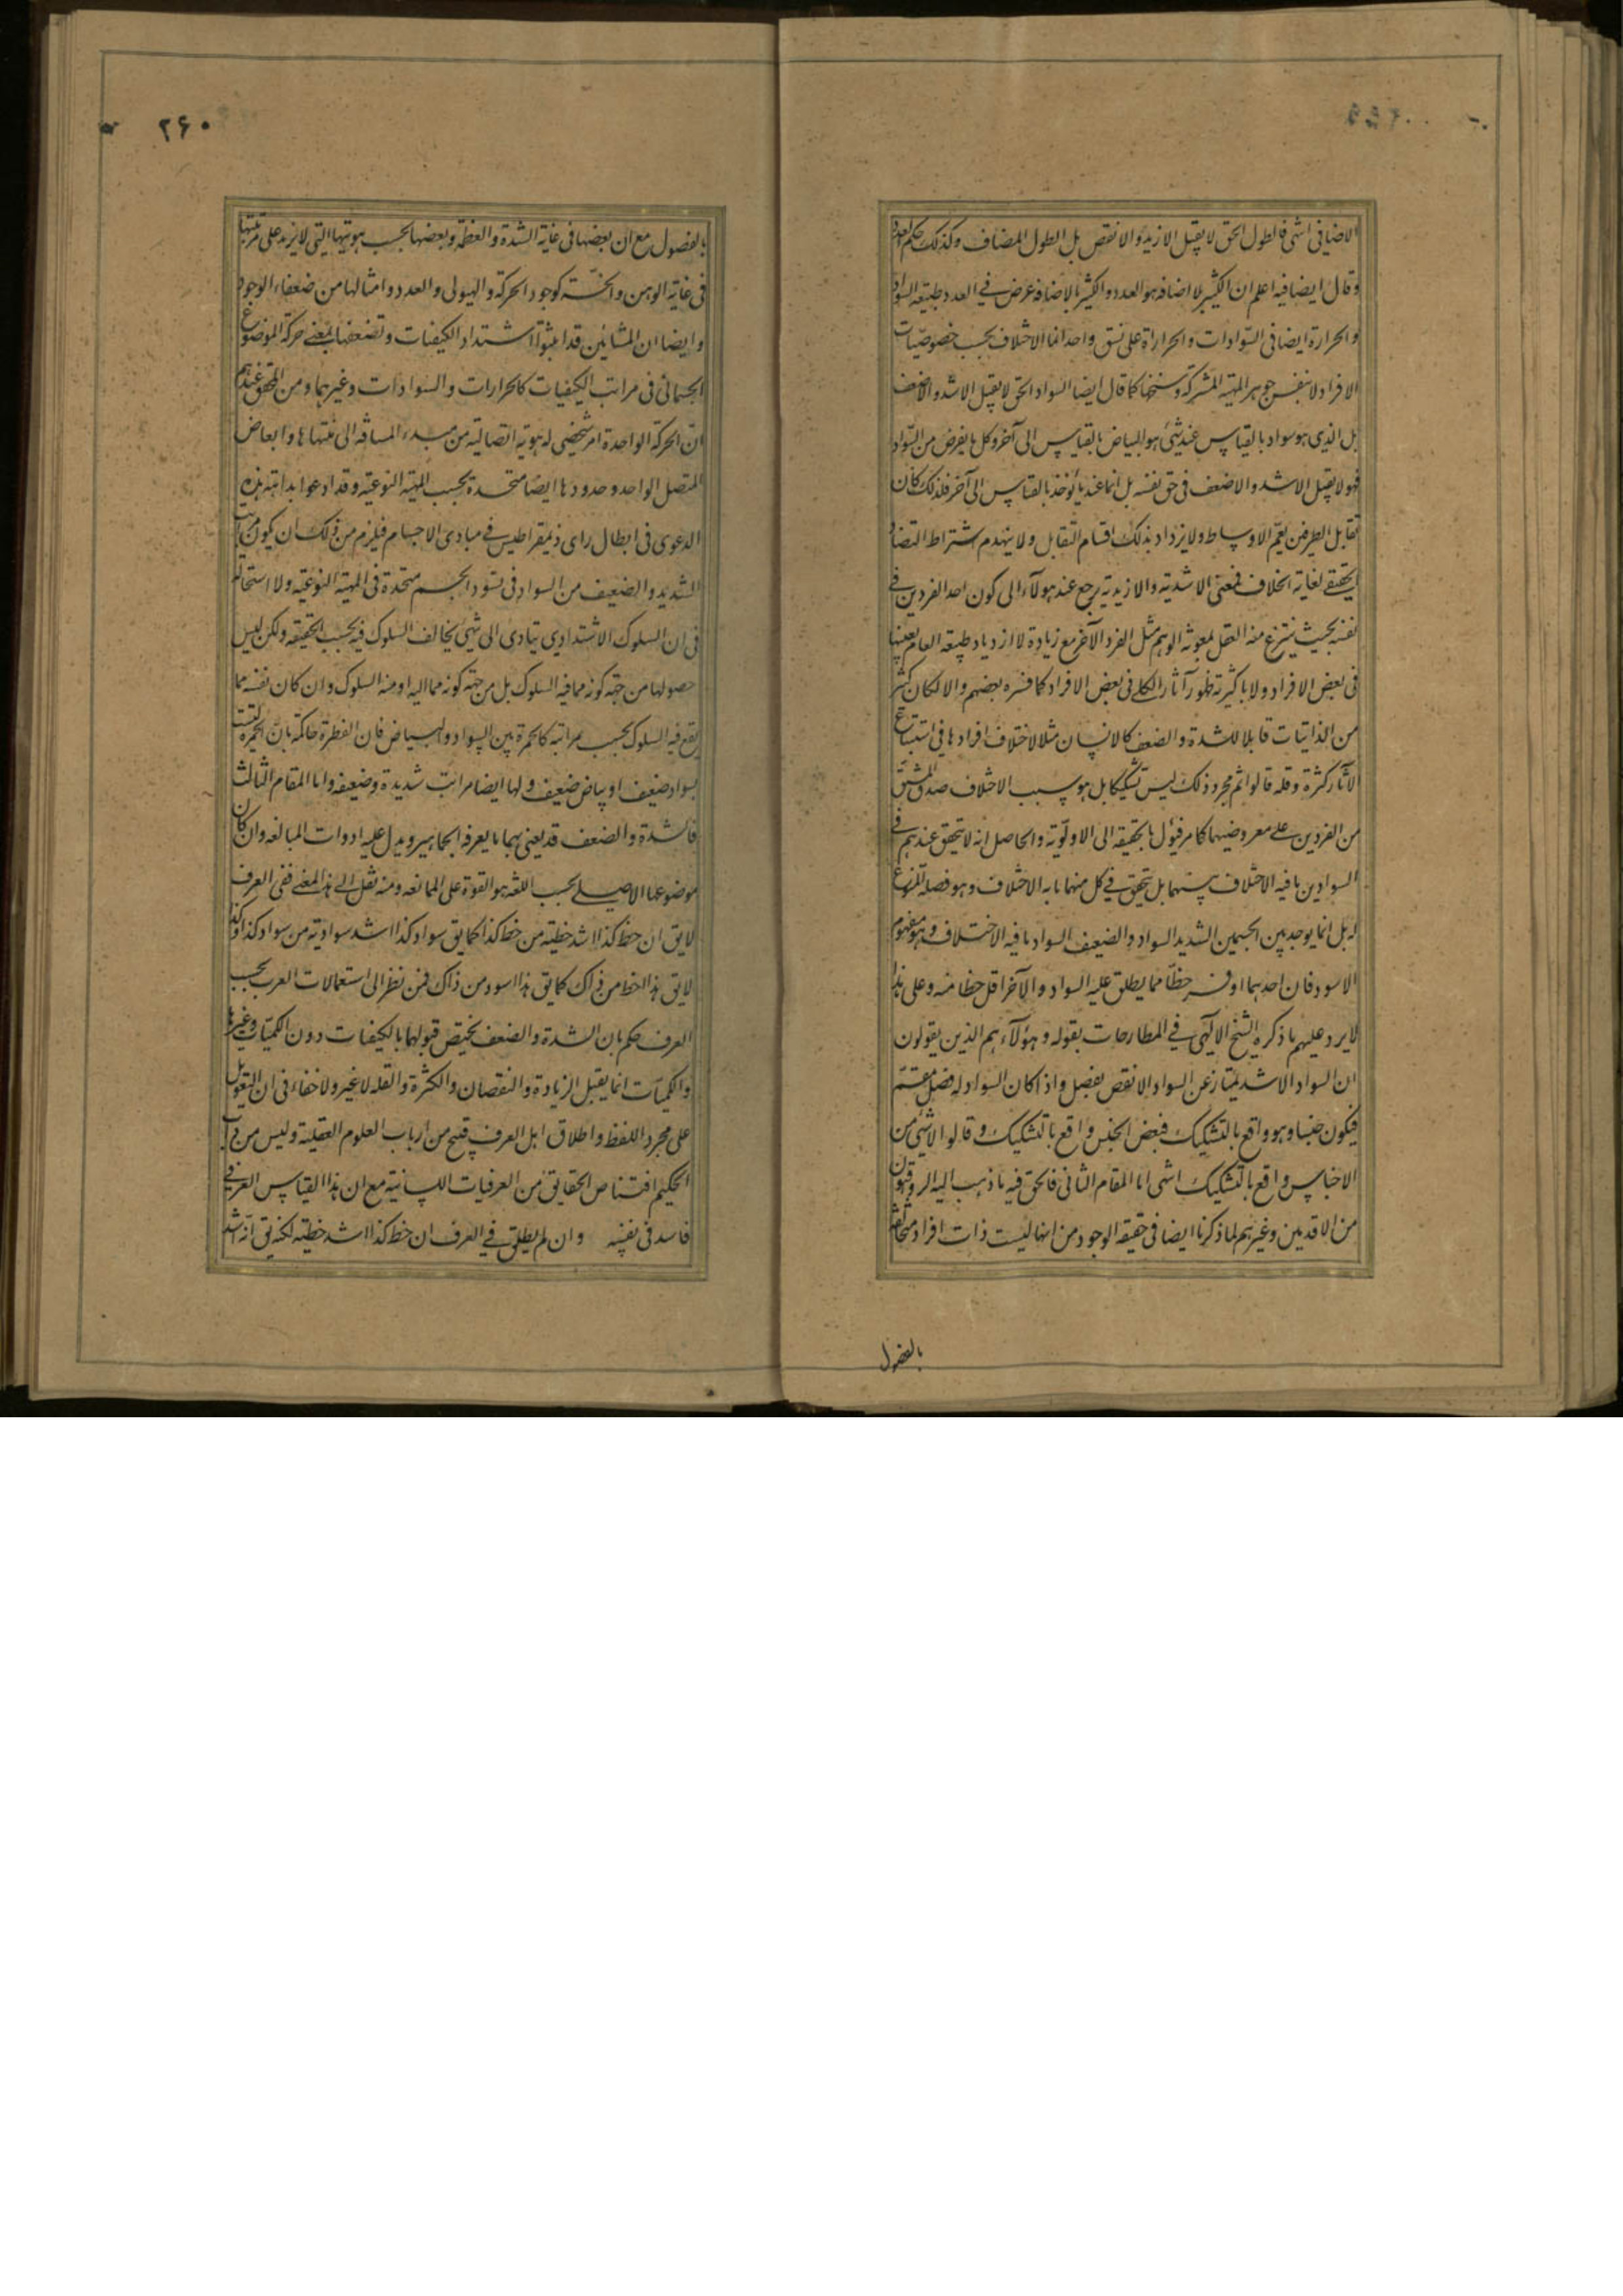 الاضافی انتهی فالطول الحق لا یقبل الازید و الانقص بل الطول المضاف و کذلک حکم العدد
و قال ایضا فیه اعلم ان الکثیر بلا اضافه هو العدد و الکثیر بالاضافه عرض فی العدد طبیعه السواد
و الحرارة ایضا فی السّوادات و الحرارة علی نسق واحد انما الاختلاف بحسب خصوصیّات
الافراد لا بنفس جوهر المهیه المشترکه و سنخها کما قال ایضا السواد الحق لا یقبل الاشد و الاضعف
بل الذی هو سواد بالقیاس عند شئ هو البیاض بالقیاس الی آخر و کل ما یفرض من السّواد
فهو لا یقبل الاشد و الاضعف فی حق نفسه بل انما عند ما یؤخذ بالقیاس الی آخر فلذلک کان
تقابل الطرفین یعم الاوساط و لا یزداد بذلک اقسام التّقابل و لا ینهدم اشتراط التضاد
الحقیقی لغایه الخلاف فمعنی الاشدیه و الازیدیه یرجع عند هولآء الی کون احد الفردین فی
نفسه بحیث ینتزع منه العقل بمعونه الوهم مثل الفرد الآخر مع زیادة لا ازدیاد طبیعه العام بعینها
فی بعض الافراد و لا باکثریه ظهور آثار الکلی فی بعض الافراد کما فسره بعضهم و الا لکان کثیر
من الذاتیات قابلا للشدة و الضعف کالانسان مثلا لاختلاف افرادها فی استتباع
الآثار کثرة و قله قالوا ثم مجرد ذلک لیس تشکیکا بل هو سبب الاختلاف صدق المشتق
من الفردین علی معروضیهما کما مر فیؤل بالحقیقه الی الاولویّه و الحاصل انه لا یتحقق عندهم فی
السوادین ما فیه الاختلاف بینهما بل یتحقق فی کل منهما ما به الاختلاف و هو فصله المنوع
له بل انما یوجد بین الجسمین الشدید السواد و الضعیف السواد ما فیه الاختلاف و هو مفهوم
الاسود فان احدهما اوفر حظّا مما یطلق علیه السواد و الآخر اقل حظا منه و علی هذا
لا یرد علیهم ما ذکره الشیخ الآلهی فی المطارحات بقوله و هؤلآء هم الذین یقولون
ان السواد الاشد یمتاز عن السواد الانقص بفصل و اذا کان السواد له فصل مقسّم
فیکون جنسا و هو واقع بالتشکیک فبعض الجنس واقع بالتشکیک و قالوا لا شئ من
الاجناس واقع بالتشکیک انتهی اما المقام الثانی فالحق فیه ما ذهب الیه الرواقیون
من الاقدمین و غیرهم لما ذکرنا ایضا فی حقیقه الوجود من انها لیست ذات افراد متخالفه
بالفصول
۲۶۰
بالفصول مع ان بعضها فی غایه الشدة و العظمه و بعضها بحسب هویتها التی لا یزید علی مرتبتها
فی غایه الوهن و الخسّه کوجود الحرکه و الهیولی و العدد و امثالها من ضعفاء الوجود
و ایضا ان المشائین قد اثبتوا اشتداد الکیفیات و تضعفها بمعنی حرکه الموضوع
الجسمانی فی مراتب الکیفیات کالحرارات و السوادات و غیرهما و من المحقق عندهم
انّ الحرکه الواحدة امر شخصی له هویه اتصالیه من مبدء المسافه الی منتهاها و ابعاض
المتصل الواحد و حدودها ایضا متحدة بحسب المهیه النوعیه و قد ادعوا بداهه هذه
الدعوی فی ابطال رای ذیمقراطیس فی مبادی الاجسام فیلزم من ذلک ان یکون مراتب
الشدید و الضعیف من السواد فی تسود الجسم متحدة فی المهیه النوعیه و لا استحاله
فی ان السلوک الاشتدادی یتادی الی شئ یخالف السلوک فیه بحسب الحقیقه و لکن لیس
حصولها من جهه کونه مما فیه السلوک بل من جهه کونه مما الیه او منه السلوک و ان کان نفسه مما
یقع فیه السلوک بحسب مراتبه کالحمرة بین السواد و البیاض فان الفطرة حاکمه بانّ الحمرة لیست
بسواد ضعیف او بیاض ضعیف و لها ایضا مراتب شدیدة و ضعیفه و اما المقام الثالث
فالشدة و الضعف قد یعنی بهما ما یعرفه الجماهیر و یدل علیه ادوات المبالغه و ان کان
موضوعها الاصلی بحسب اللغه هو القوة علی الممانعه و منه نقل الی هذا المعنی ففی العرف
لا یق ان خط کذا اشد خطیّه من خط کذا کما یق سواد کذا اشد سوادیه من سواد کذا و کذا
لا یق هذا اخط من ذاک کما یق هذا اسود من ذاک فمن نظر الی استعمالات العرب بحسب
العرف حکم بان الشدة و الضعف یختص قبولهما بالکیفیات دون الکمیّات و غیرها
و الکمیّات انما یقبل الزیادة و النقصان و الکثرة و القله لا غیر و لا خفاء فی ان التعویل
علی مجرد اللفظ و اطلاق اهل العرف قبیح من ارباب العلوم العقلیه و لیس من داب
الحکیم اقتناص الحقایق من العرفیات اللسانیه مع ان هذا القیاس العرفی
فاسد فی نفسه و ان لم یطلق فی العرف ان خط کذا اشد خطیّه لکنه یق انّه اشد